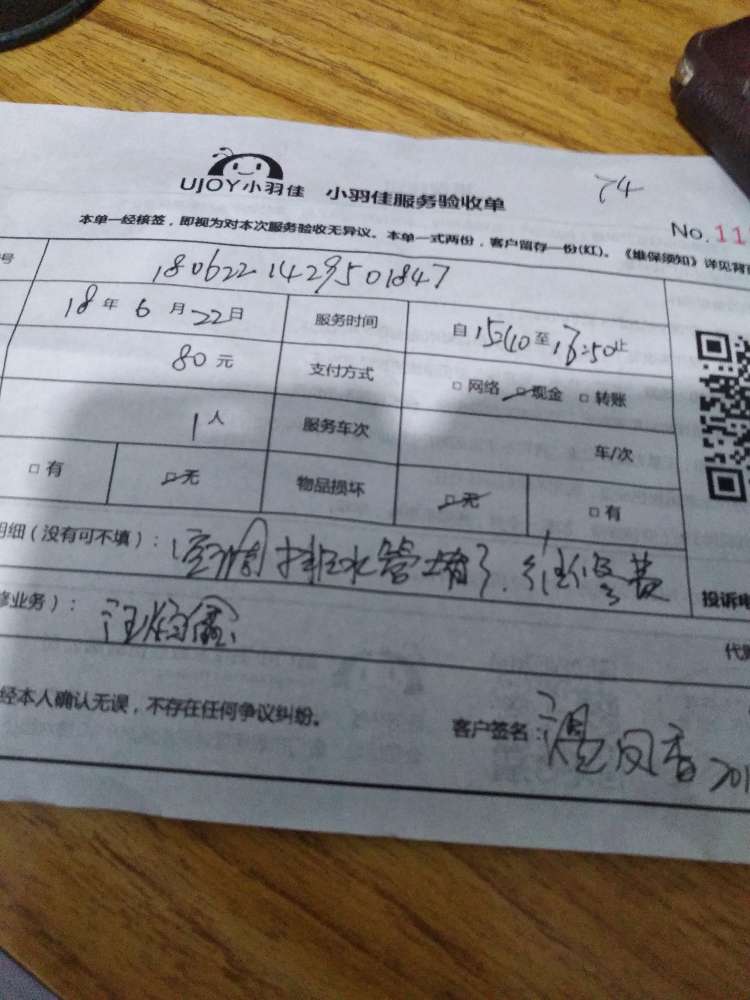 74
UJOY小羽佳 小羽佳服务验收单
No.11
本单一经核签，即视为对本次服务验收无异议。本单一式两份，客户留存一份(红)。《维保须知》详见背
号 1806221429501847
18年6月22日 服务时间 自15:40至16:50止
80元 支付方式 □网络 □现金 □转账
1人 服务车次 车/次
□有 □无 物品损坏 □无 □有
明细（没有可不填）： 空调排水管堵了，维修费
投诉电
修业务）：
代
经本人确认无误，不存在任何争议纠纷。 客户签名： 温凤香 201